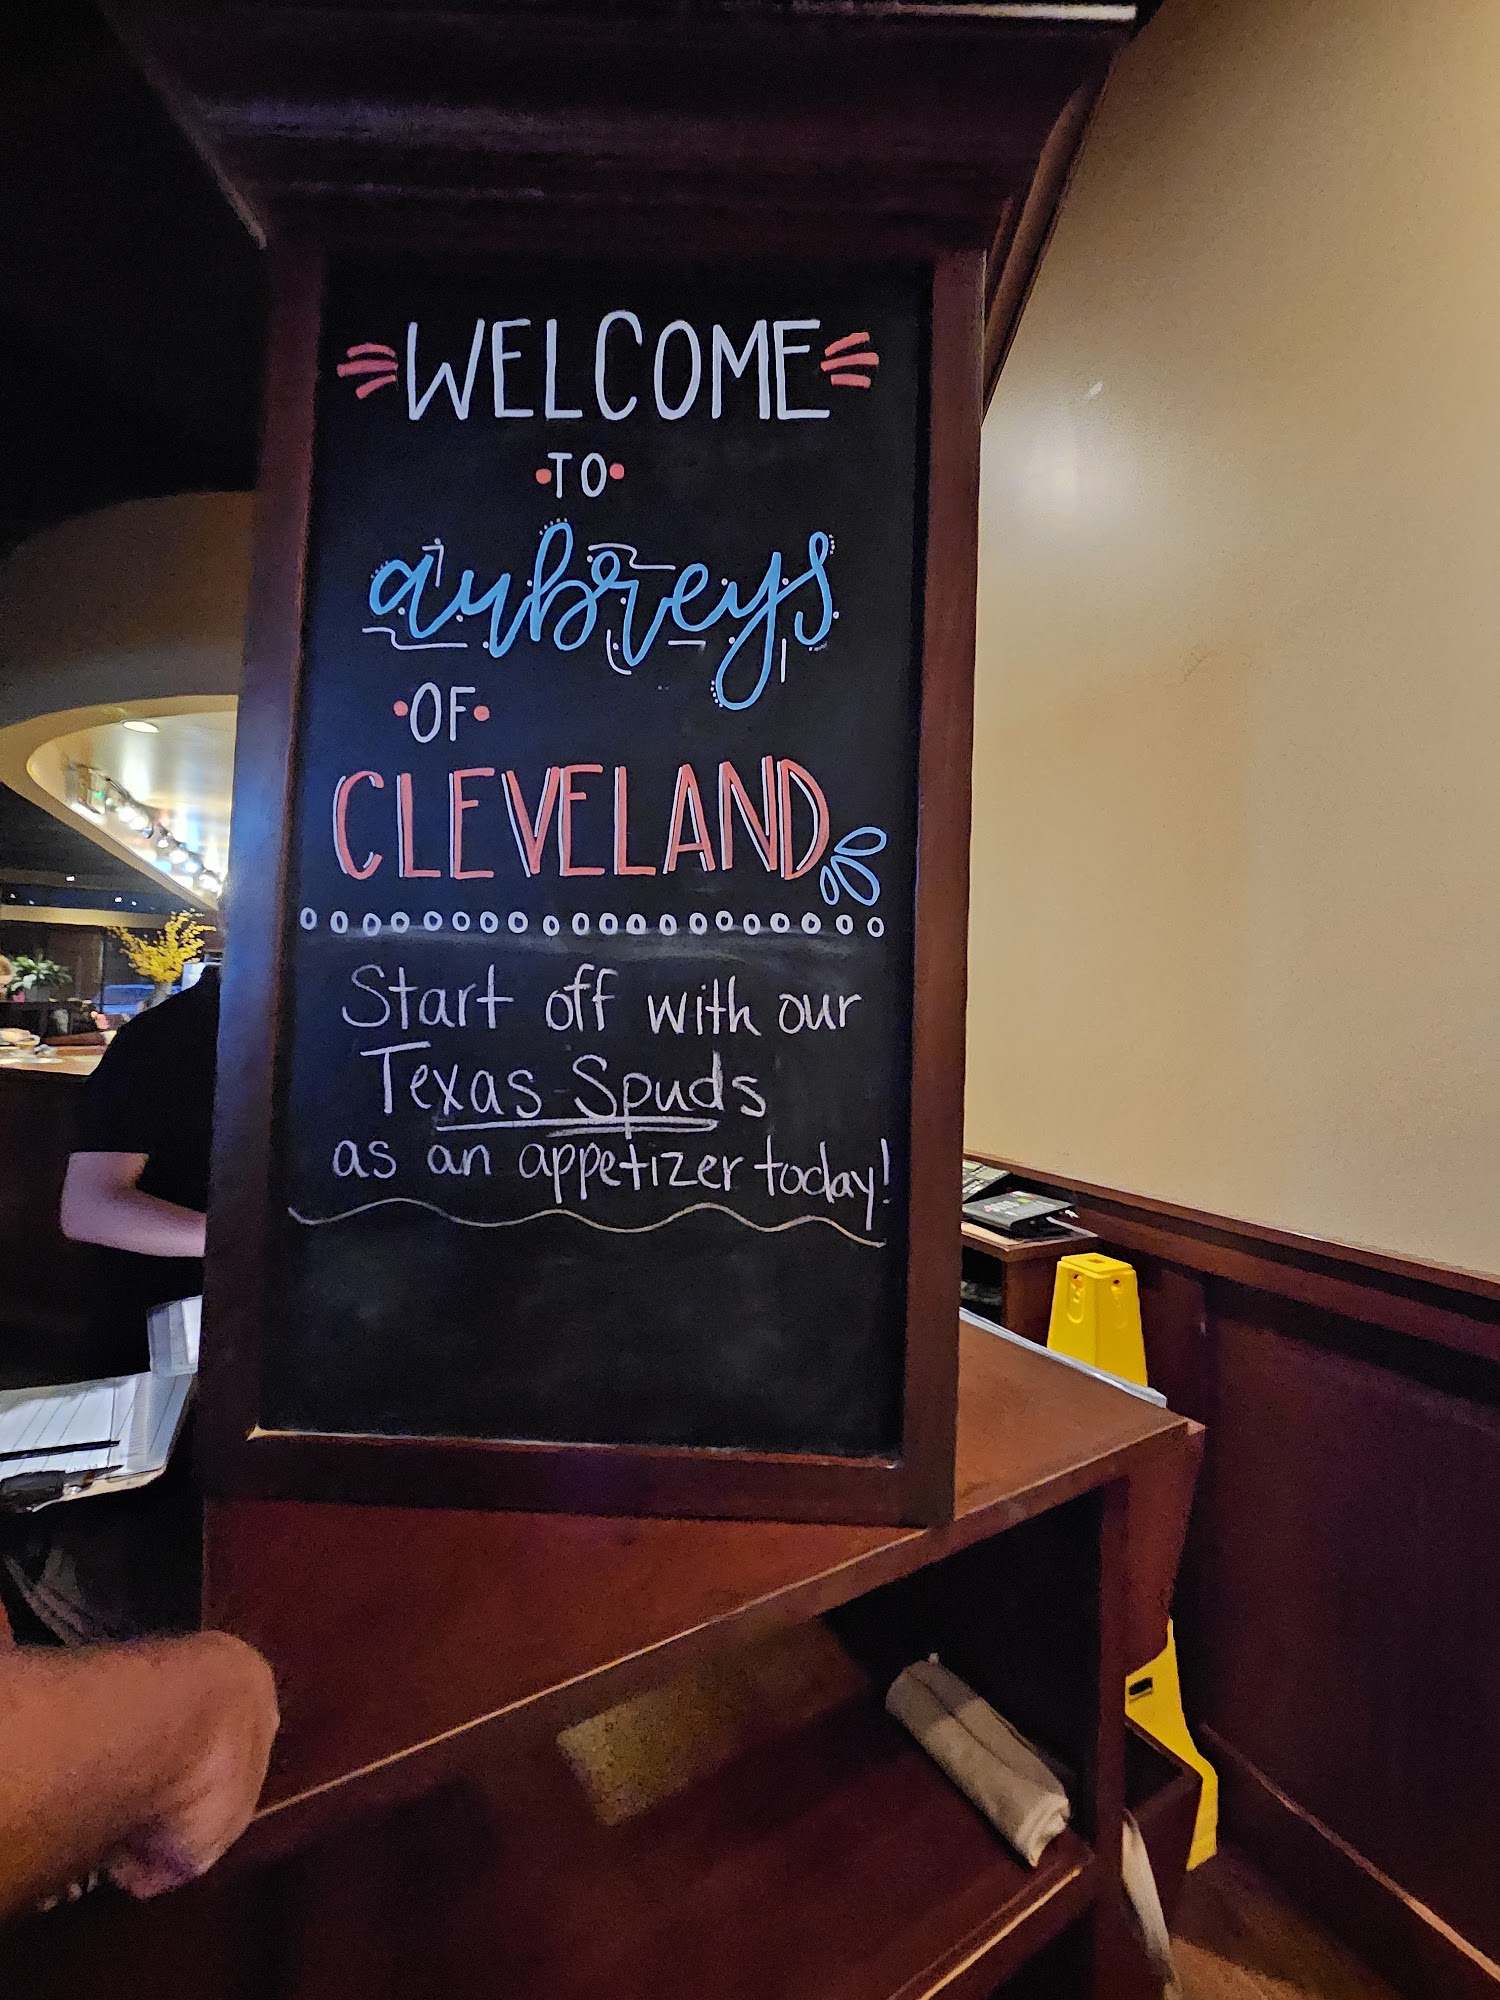 WELCOME
TO
aubreys
OF
CLEVELAND
Start off with our
Texas Spuds
as an appetizer today!